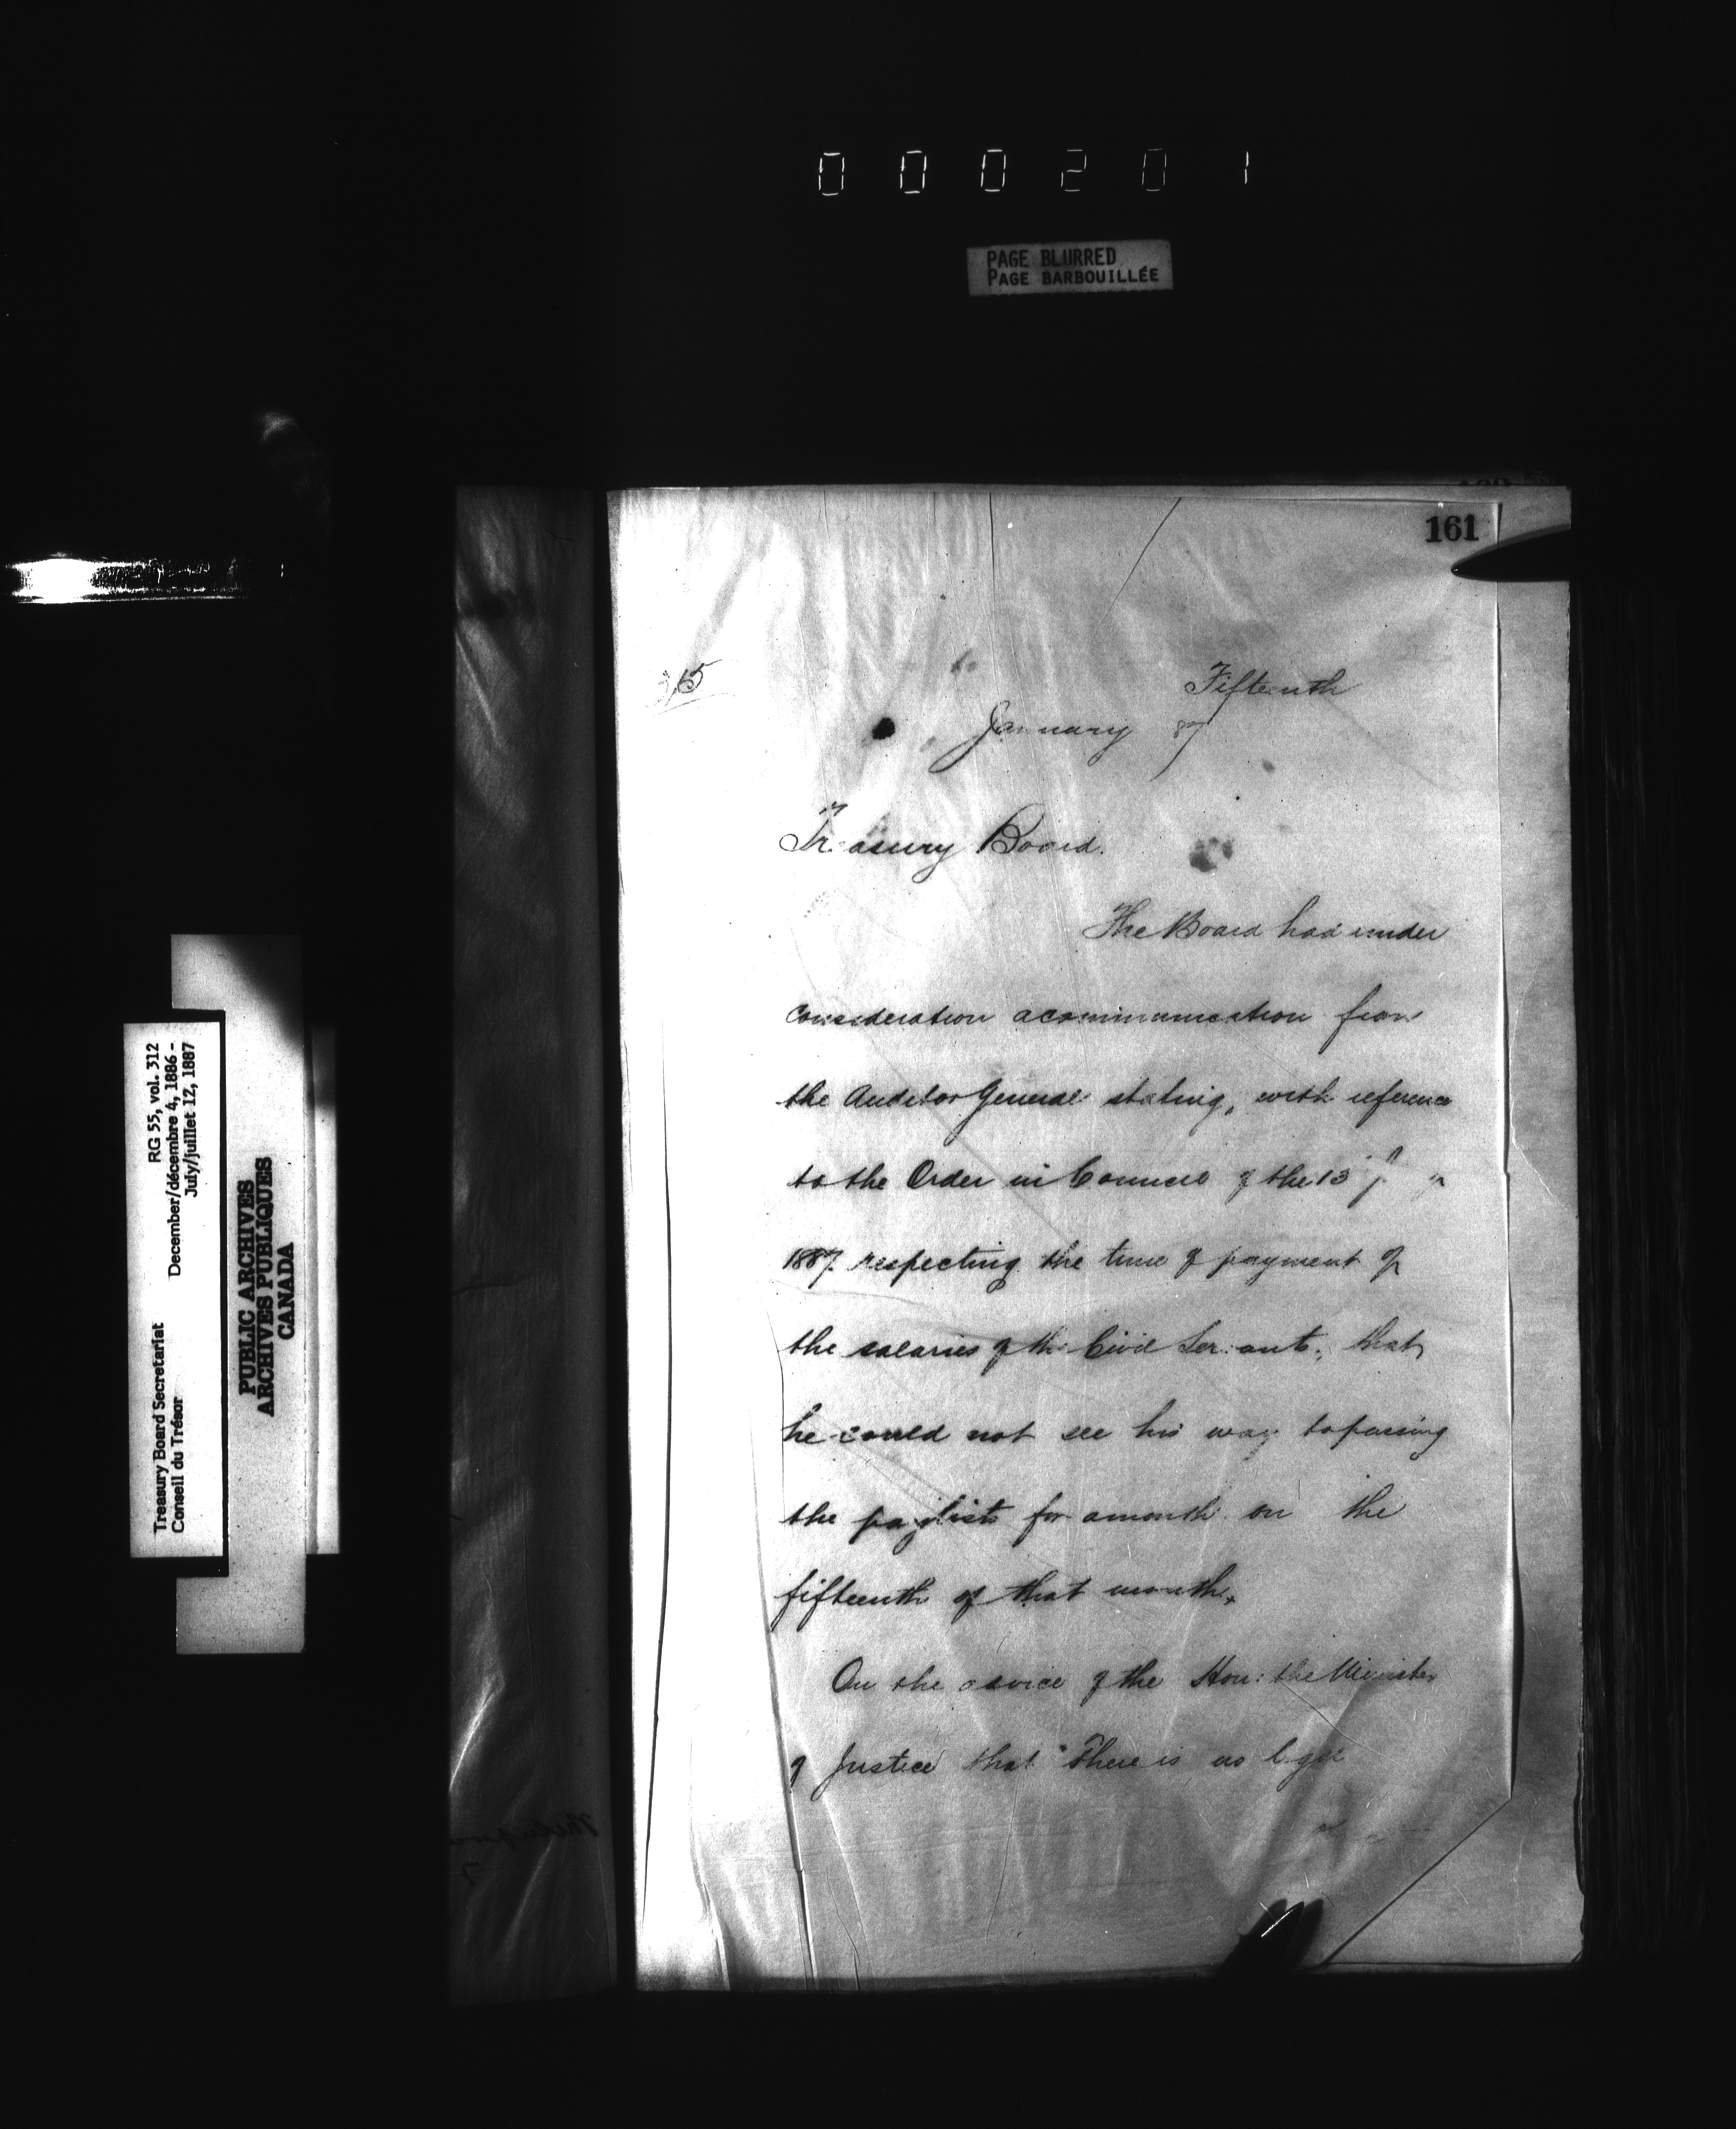 000201
PAGE BLURRED
PAGE BARBOUILLÉE
161
Fifteenth
January 87
Treasury Board.
The Board had under
consideration a communication from
the Auditor General stating, with reference
to the Order in Council of the 13
1887 respecting the time of payment of
the salaries of the Civil Servants, that
he could not see his way to passing
the paylists for a month on the
fifteenth of that month.
On the advice of the Hon: the Minister
of Justice that "There is no legal
Treasury Board Secretariat RG 55, vol. 312
Conseil du Trésor December/décembre 4, 1886 -
July/juillet 12, 1887
PUBLIC ARCHIVES
ARCHIVES PUBLIQUES
CANADA